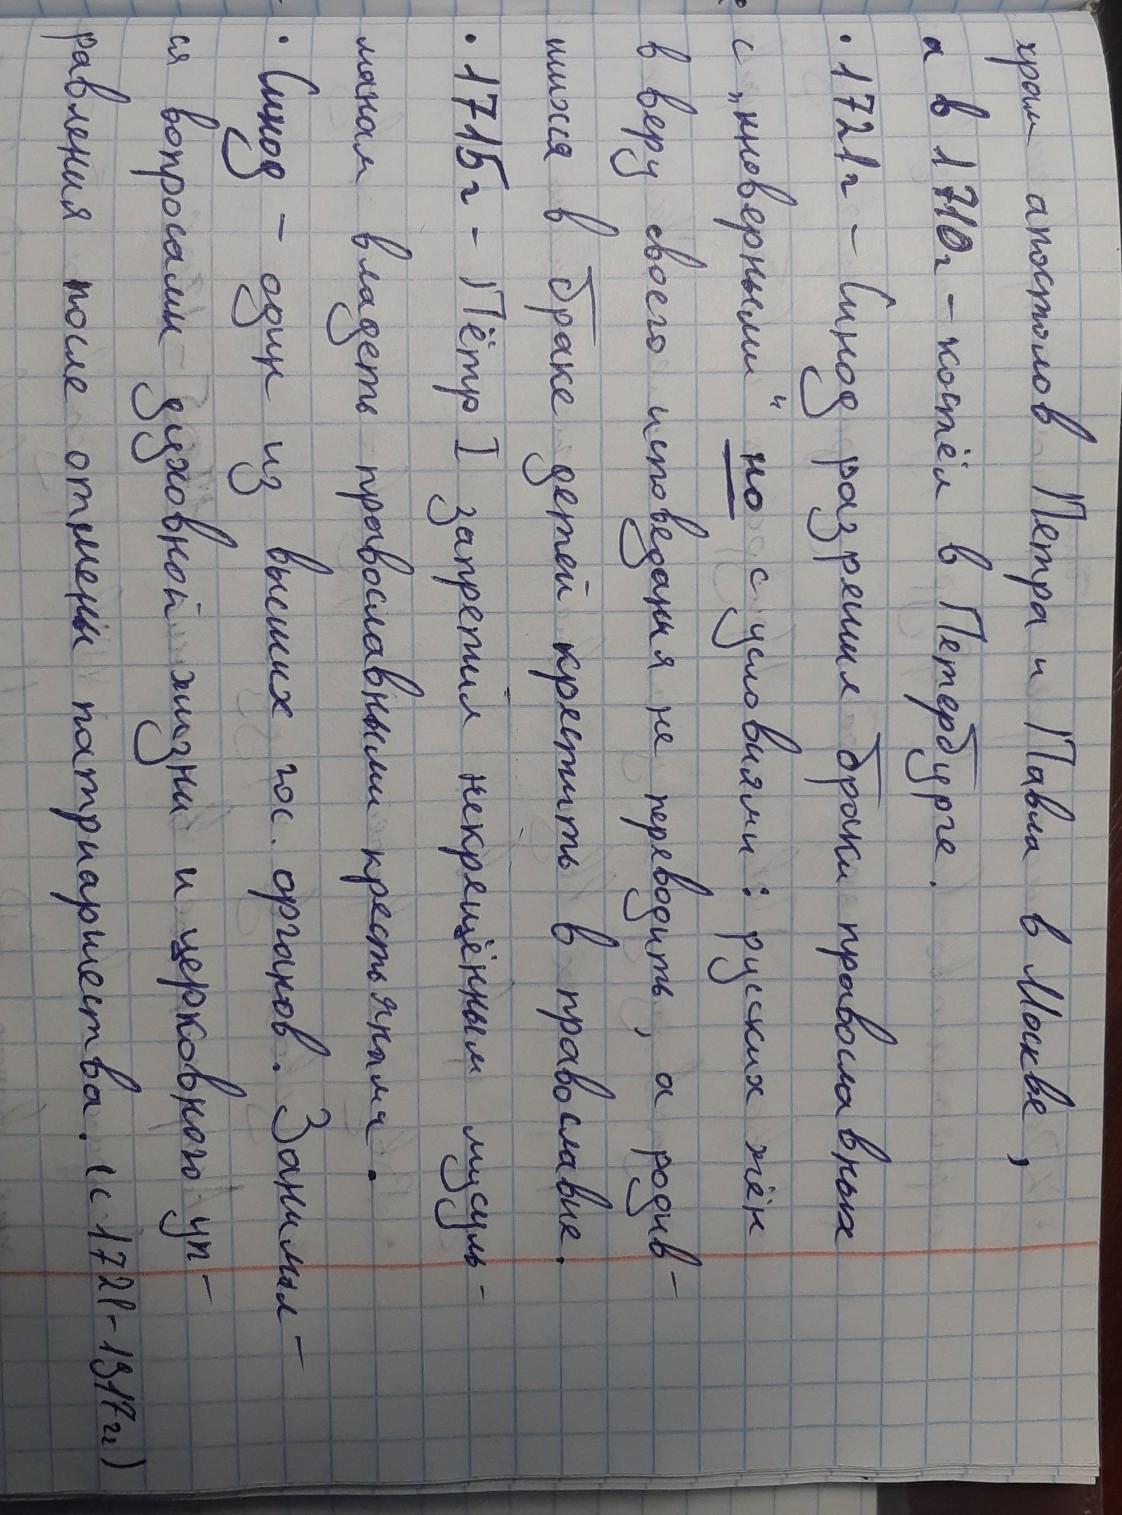 храм апостолов Петра и Павла в Москве,
а в 1710г - костёл в Петербурге.
• 1721г - Синод разрешил браки православных
с „иноверными" но с условиями: русских жён
в веру своего исповедания не переводить, а родив-
шихся в браке детей крестить в православие.
• 1715г - Пётр I запретил некрещённым мусуль-
манам владеть православными крестьянами.
• Синод - один из высших гос. органов. Занимал-
ся вопросами духовной жизни и церковного уп-
равления после отмены патриаршества. (с 1721-1917гг)